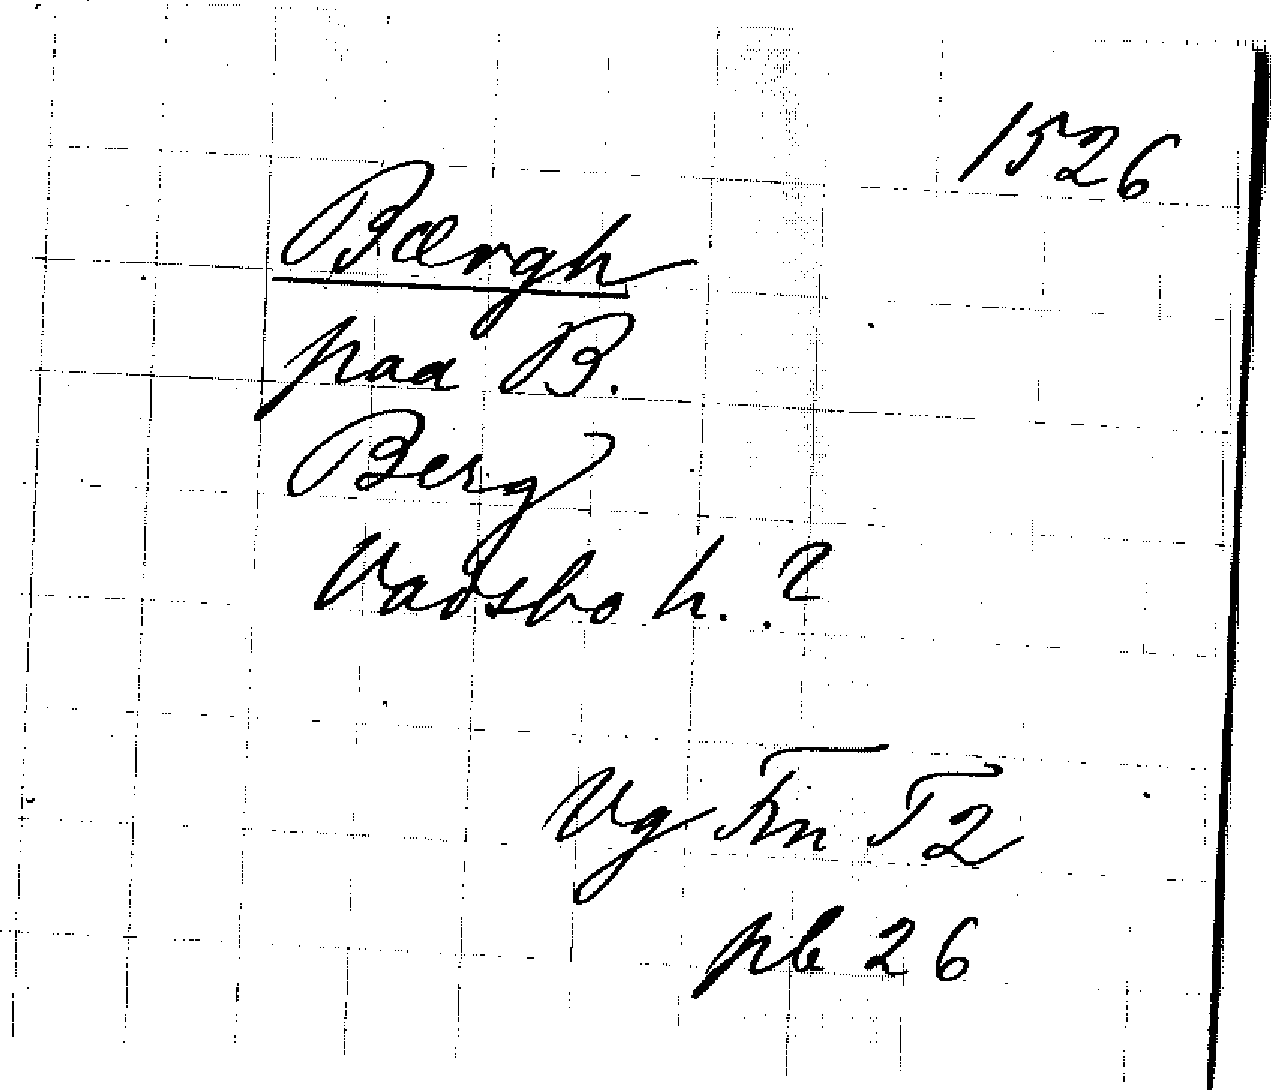 1526
Bærgh
paa B.
Berg
Vadsbo h. ?
Vg Fin T2
pb 26